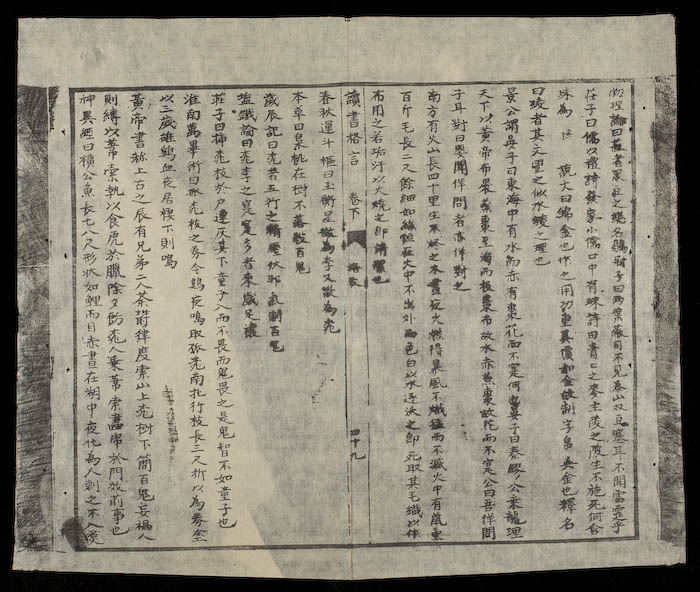 物理論曰菽者眾豆之總名鶡冠子曰兩葉蔽目不見泰山双豆塞耳不聞雷霆
莊子曰儒以禮詩發冢小儒口中有珠詩曰青青之麥生陵之陂生不施死何含
珠為 說文曰錦金也作之用功重其價如金故制字帛與金也釋名
曰綾者其文望之似水凌之理也
景公謂晏子曰東海中有水而赤有棗花而不實何晏子曰秦繆公乘龍理
天下以黃帝布裹蒸棗至海而投棗布故水赤蒸棗故花而不實公曰吾佯問
子耳對曰嬰聞佯問者亦佯對之
南方有火山長四十里生不燼之木晝夜火燃得暴風不熾猛雨不滅火中有鼠重
百斤毛長二尺餘細如絲恒在火中不出外而色白以水逐沃之即死取其毛織以作
布用之若垢汙以火燒之即清潔也
讀書格言 卷下 四十九
春秋運斗樞曰玉衡星散為李又散為桃
本草曰梟桃在樹不落殺百鬼
歲辰記曰桃者五行之精壓伏邪氣制百鬼
鹽鐵論曰桃李之實多者來歲足穰
莊子曰插桃枝於戶連灰其下童子入而不畏而鬼畏之是鬼智不如童子也
淮南萬畢術曰取桃枝之券令雞夜鳴取孤桃南北行枝長三尺折以為券塗
以三歲雄雞血夜居棲下則鳴
黃帝書称上古之辰有兄弟二人荼與鬱律度索山上桃樹下簡百鬼妄禍人
則縛以葦索執以食虎於臘除夕飾桃人葉葦索畵虎於門效前事也
神異經曰橫公魚長七八尺形状如鯉而目赤晝在湖中夜化為人刺之不入